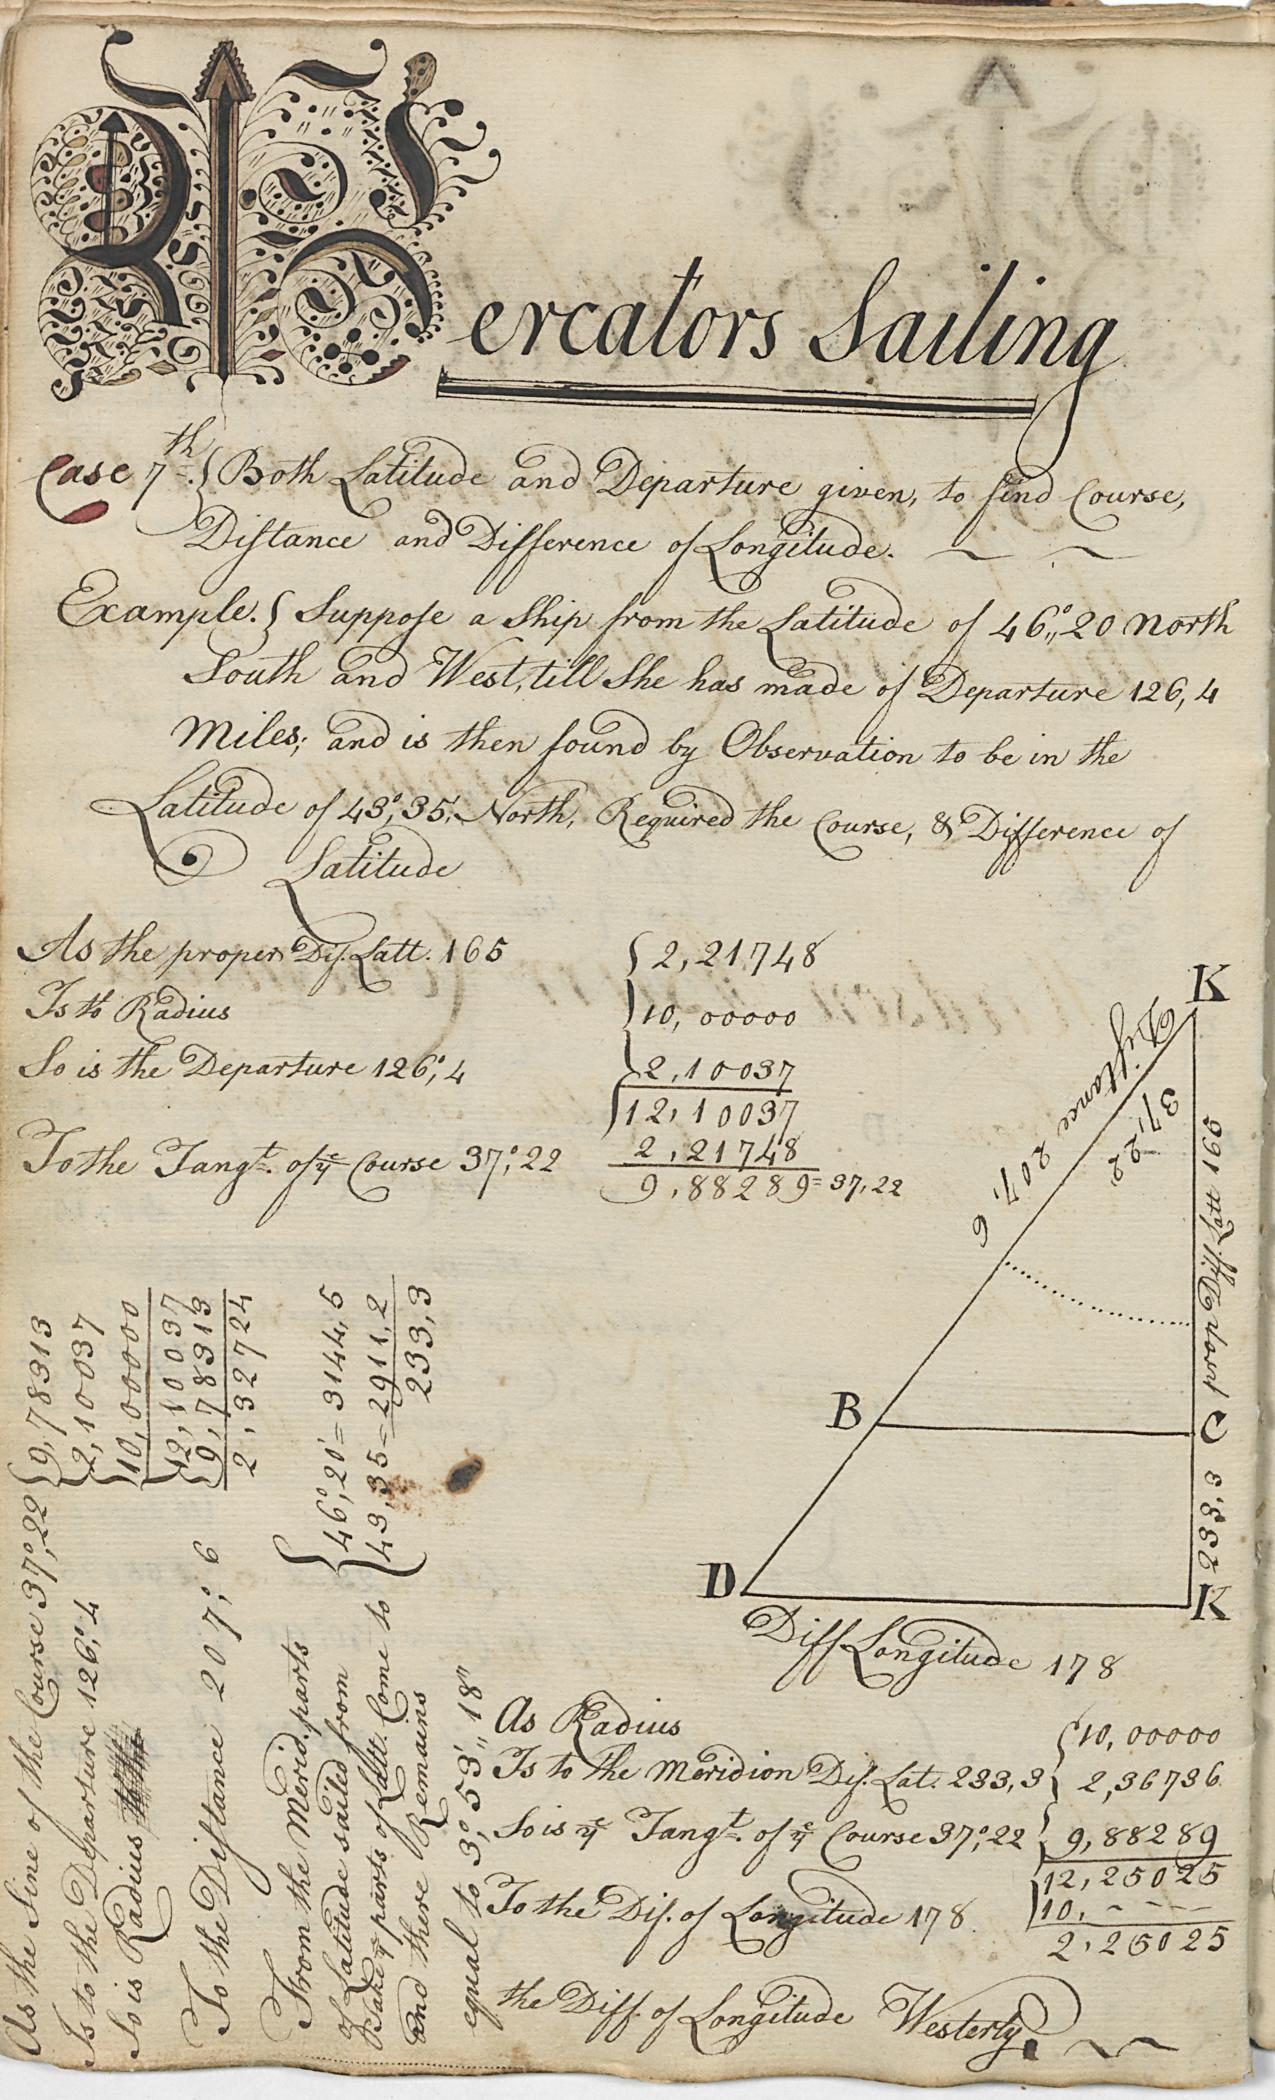 Mercators Sailing
Case 7th. { Both Latitude and Departure given, to find Course,
Distance and Difference of Longitude.
Example. { Suppose a Ship from the Latitude of 46°,,20 North
South and West, till She has made of Departure 126,4
Miles; and is then found by Observation to be in the
Latitude of 43°,35', North, Required the Course, & Difference of
Latitude
As the proper Dif. Latt. 165 { 2,21748
Is to Radius 10,00000
So is the Departure 126°,4 2,10037
12,10037
2,21748
To the Tangt. of ye Course 37°,22 9,88289 = 37,22
K
Distance 207,6
37,,22
Proper Diff. Latt 166
B
C
233,3
D
K
Diff Longitude 178
As the Sine of the Course 37°,22 { 9,78313
Is to the Departure 126°,4 2,10037
So is Radius 10,00000
12,10037
9,78313
To the Distance 207°,6 2,32724
From the Merid. parts
of Latitude sailed from { 46°,20' = 3144,5
Take ye parts of Latt. Come to 43,35 = 2911,2
and there Remains 233,3
equal to 3°,,53',,18"
As Radius { 10,00000
Is to the Meridion Dif. Lat. 233,3 2,36736
So is ye Tangt. of ye Course 37°,22 9,88289
12,25025
10, - - - -
To the Dif. of Longitude 178 2,25025
the Diff. of Longitude Westerly